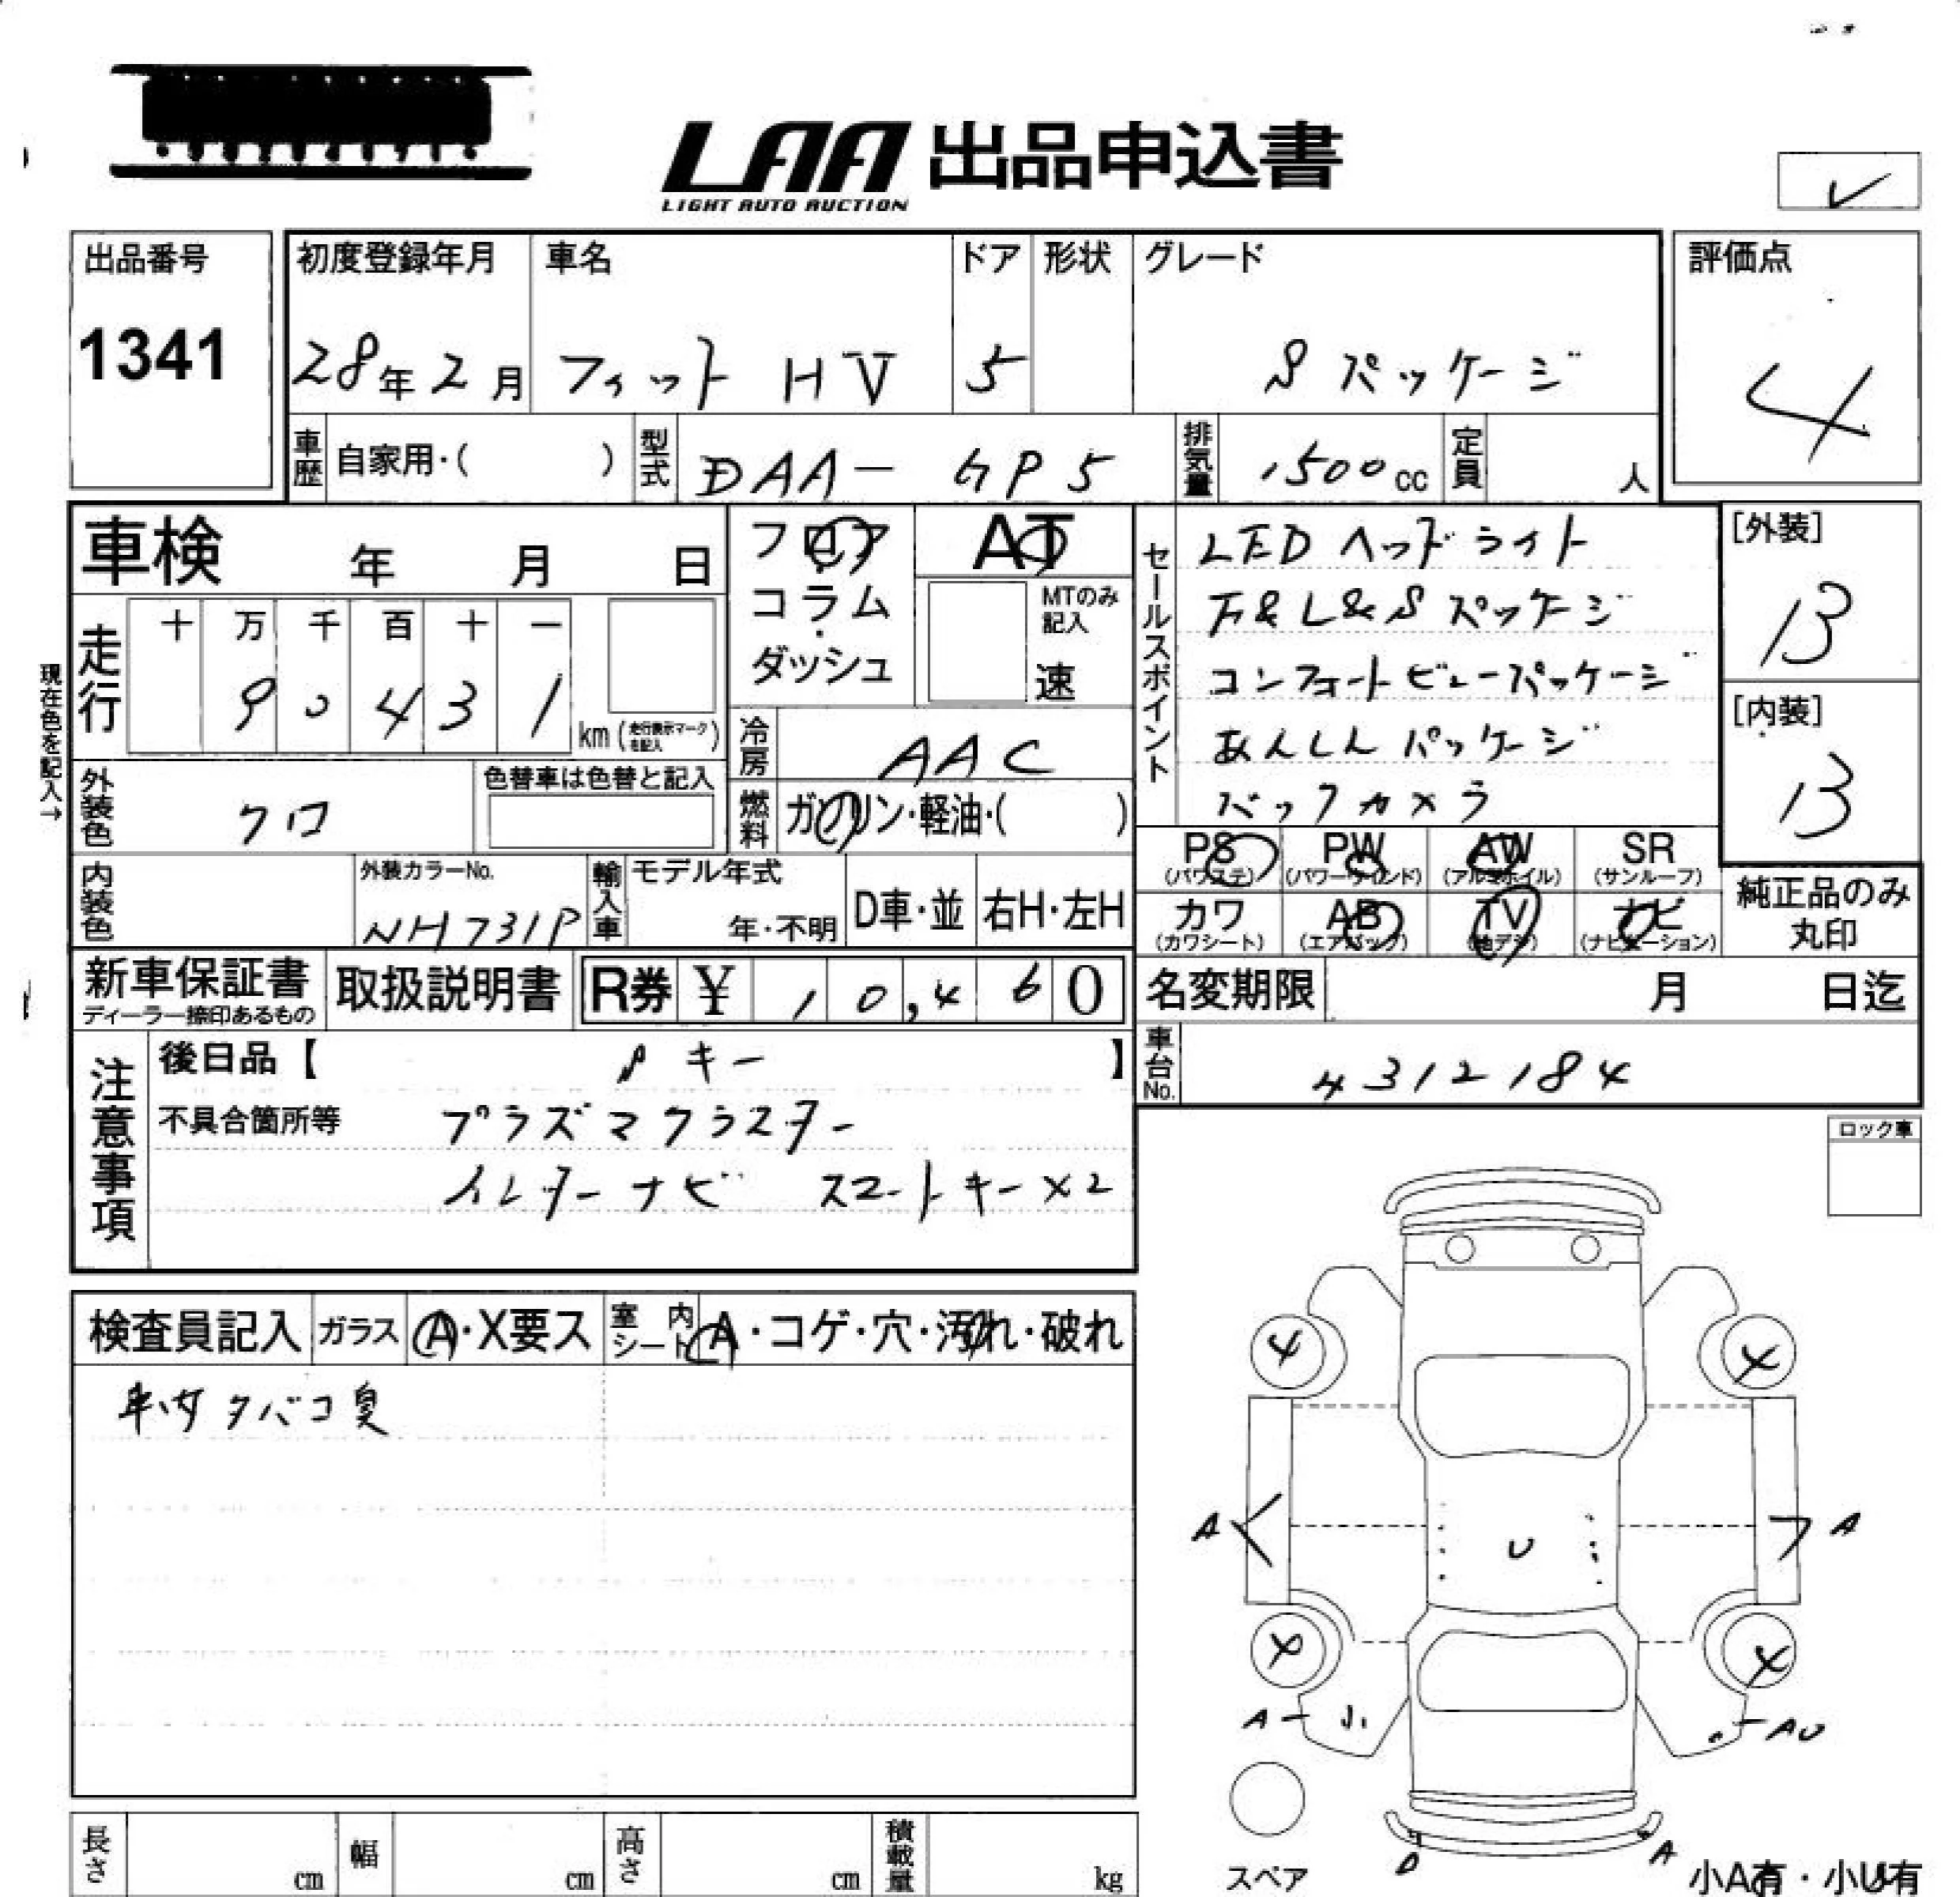 LAA 出品申込書
LIGHT AUTO AUCTION
出品番号
1341
初度登録年月
28年2月
車名
フィット HV
ドア
5
形状
グレード
S パッケージ
評価点
4
車歴
自家用・( )
型式
DAA-GP5
排気量
1500cc
定員
人
車検 年 月 日
走行
十 万 千 百 十 一
9 0 4 3 1
km (走行表示マークを記入)
現在色を記入→
外装色
クロ
色替車は色替と記入
内装色
外装カラーNo.
NH731P
輸入車
モデル年式
年・不明
D車・並
右H・左H
フロア
・
コラム
・
ダッシュ
AT
MTのみ記入
速
冷房
AAC
燃料
ガソリン・軽油・( )
セールスポイント
LEDヘッドライト
F&L&Sパッケージ
コンフォートビューパッケージ
あんしんパッケージ
バックカメラ
[外装]
B
[内装]
B
PS
(パワステ)
PW
(パワーウィンド)
AW
(アルミホイル)
SR
(サンルーフ)
カワ
(カワシート)
AB
(エアバック)
TV
(地デジ)
ナビ
(ナビゲーション)
純正品のみ
丸印
新車保証書
ディーラー捺印あるもの
取扱説明書
R券 ¥ 10,460
名変期限 月 日迄
車台No.
4312184
注意事項
後日品【 キー 】
不具合箇所等
プラズマクラスター
インターナビ スマートキー×2
検査員記入
ガラス
A・X要ス
室内シート
A・コゲ・穴・汚れ・破れ
車内タバコ臭
ロック車
4
4
A
U
A
4
4
A
AU
D
A
スペア
小A有・小U有
長さ
cm
幅
cm
高さ
cm
積載量
kg